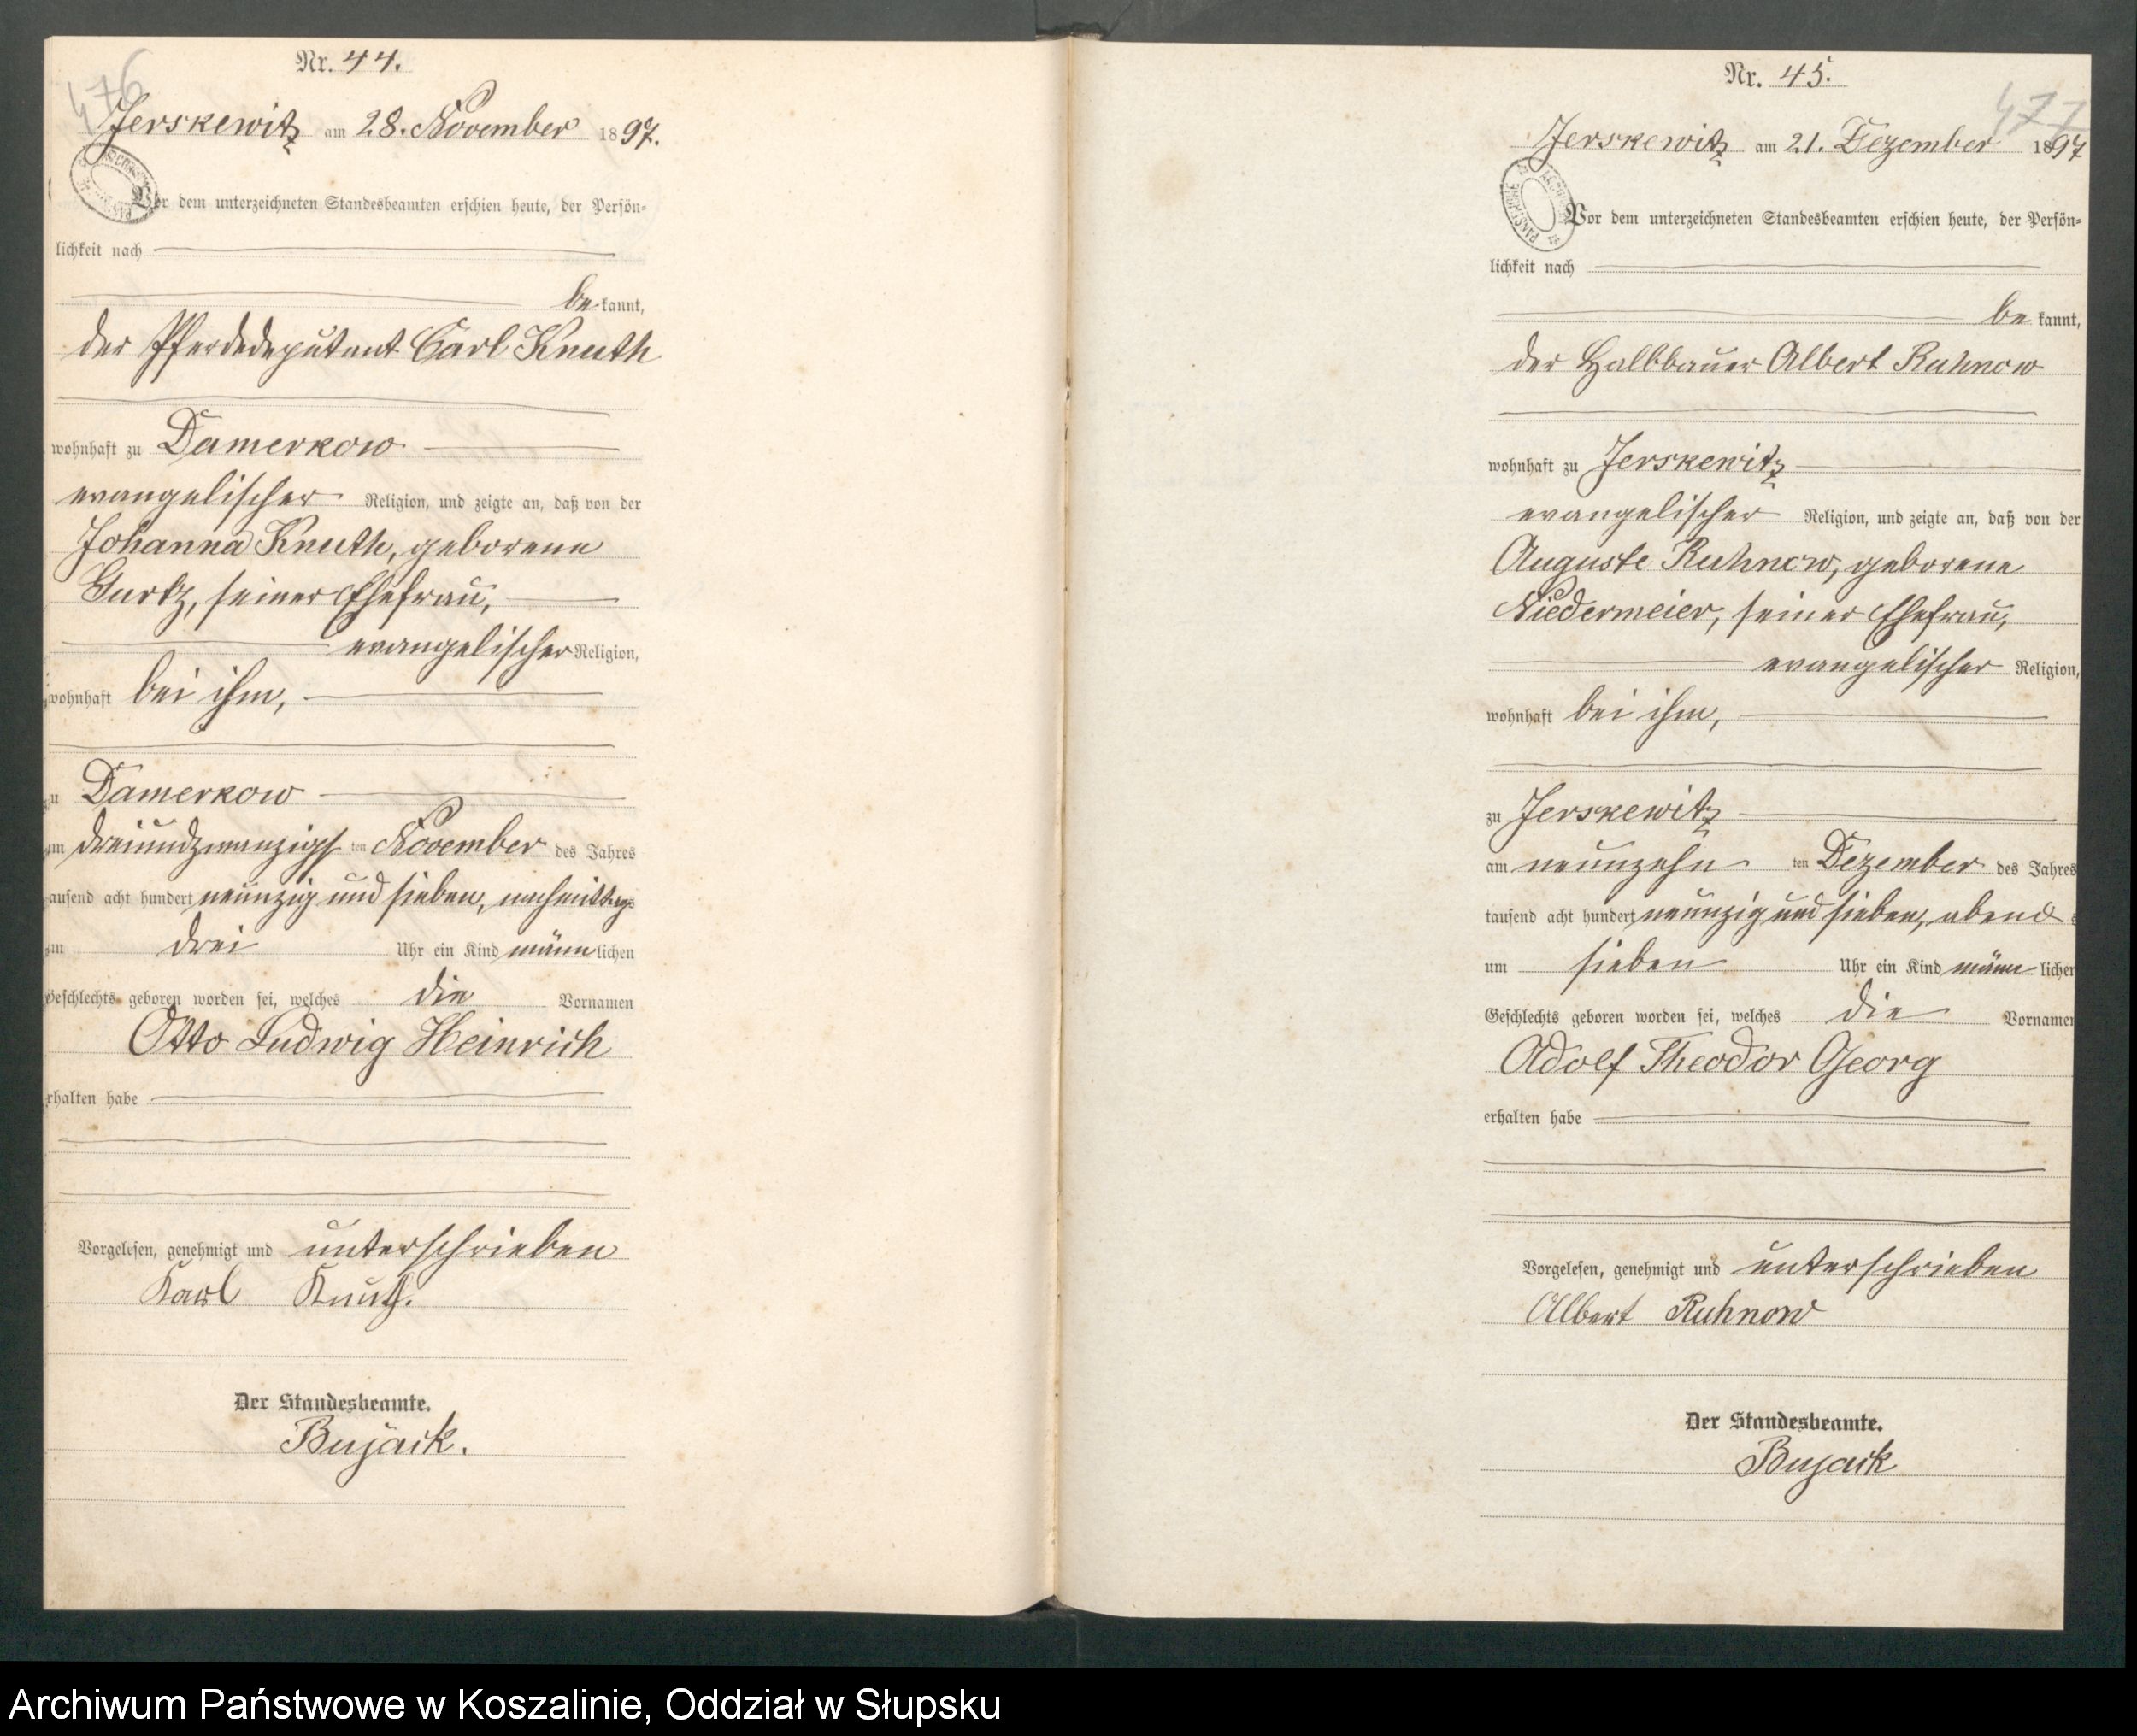 476
Nr. 44.
Jerskewitz am 28. November 1897.
Vor dem unterzeichneten Standesbeamten erschien heute, der Persön-
lichkeit nach
be kannt,
der Pferdedeputant Carl Knuth
wohnhaft zu Damerkow
evangelischer Religion, und zeigte an, daß von der
Johanna Knuth, geborene
Gurtz, seiner Ehefrau,
evangelischer Religion,
wohnhaft bei ihm,
zu Damerkow
am dreiundzwanzigsten November des Jahres
tausend acht hundert neunzig und sieben, nachmittags
um drei Uhr ein Kind männlichen
Geschlechts geboren worden sei, welches die Vornamen
Otto Ludwig Heinrich
erhalten habe
Vorgelesen, genehmigt und unterschrieben
Karl Knuth.
Der Standesbeamte.
Bujack.
477
Nr. 45.
Jerskewitz am 21. Dezember 1897
Vor dem unterzeichneten Standesbeamten erschien heute, der Persön-
lichkeit nach
be kannt,
der Halbbauer Albert Ruhnow
wohnhaft zu Jerskewitz
evangelischer Religion, und zeigte an, daß von der
Auguste Ruhnow, geborene
Niedermeier, seiner Ehefrau,
evangelischer Religion,
wohnhaft bei ihm,
zu Jerskewitz
am neunzehn ten Dezember des Jahres
tausend acht hundert neunzig und sieben, abends
um sieben Uhr ein Kind männlichen
Geschlechts geboren worden sei, welches die Vornamen
Adolf Theodor Georg
erhalten habe
Vorgelesen, genehmigt und unterschrieben
Albert Ruhnow
Der Standesbeamte.
Bujack
Archiwum Państwowe w Koszalinie, Oddział w Słupsku